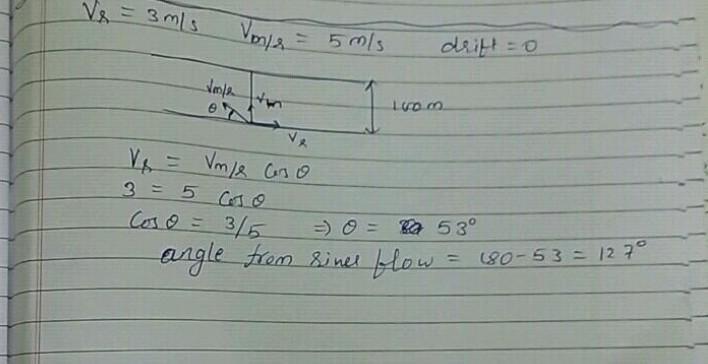 V_R = 3 m/s V_m/R = 5 m/s drift = 0
V_m/R
θ V_m 100m
V_R
V_R = V_m/R Cos θ
3 = 5 Cos θ
Cos θ = 3/5 ⇒ θ = 53°
angle from river flow = 180-53 = 127°